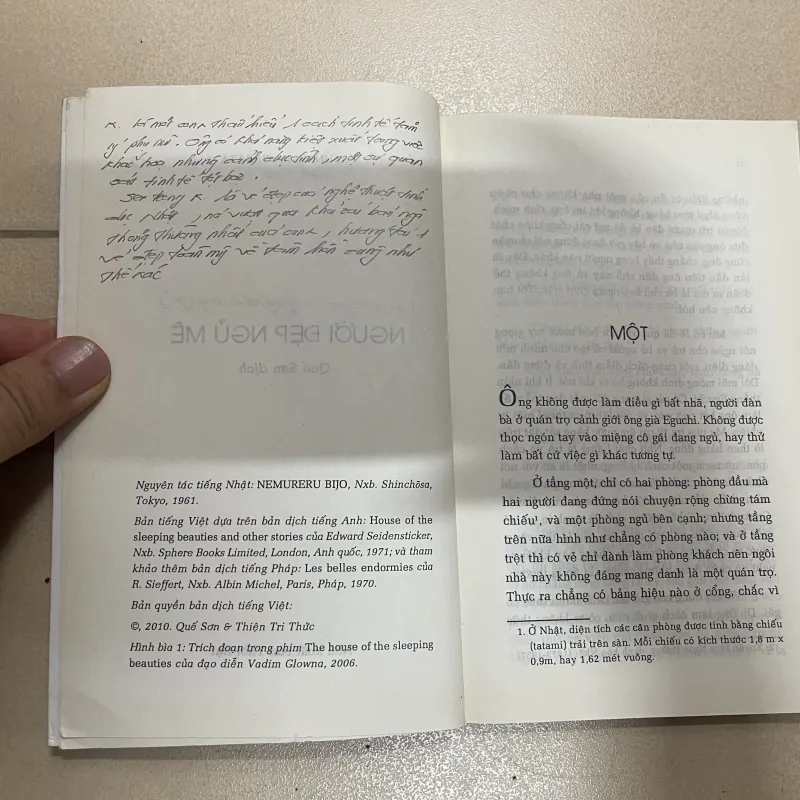 K. là một
thấu hiểu 1 cách tinh tế tâm
lý phụ nữ. Ông có khả năng kiệt xuất trong việc
khắc họa những cảnh dục tính, một sự quan
sát tinh tế
K là vẻ đẹp của nghệ thuật tình
dục Nhật, nó vượt qua khỏi cái bản ngã
thông thường nhất của
vẻ đẹp toàn mỹ về tâm hồn cũng như
thể xác
NGƯỜI ĐẸP NGỦ MÊ
Quế Sơn dịch
Nguyên tác tiếng Nhật: NEMURERU BIJO, Nxb. Shinchōsa,
Tokyo, 1961.
Bản tiếng Việt dựa trên bản dịch tiếng Anh: House of the
sleeping beauties and other stories của Edward Seidensticker,
Nxb. Sphere Books Limited, London, Anh quốc, 1971; và tham
khảo thêm bản dịch tiếng Pháp: Les belles endormies của
R. Sieffert, Nxb. Albin Michel, Paris, Pháp, 1970.
Bản quyền bản dịch tiếng Việt:
©, 2010. Quế Sơn & Thiện Tri Thức
Hình bìa 1: Trích đoạn trong phim The house of the sleeping
beauties của đạo diễn Vadim Glowna, 2006.
MỘT
Ông không được làm điều gì bất nhã, người đàn
bà ở quán trọ cảnh giới ông già Eguchi. Không được
thọc ngón tay vào miệng cô gái đang ngủ, hay thử
làm bất cứ việc gì khác tương tự.
Ở tầng một, chỉ có hai phòng: phòng đầu mà
hai người đang đứng nói chuyện rộng chừng tám
chiếu¹, và một phòng ngủ bên cạnh; nhưng tầng
trên nữa hình như chẳng có phòng nào; và ở tầng
trệt thì có vẻ chỉ dành làm phòng khách nên ngôi
nhà này không đáng mang danh là một quán trọ.
Thực ra chẳng có bảng hiệu nào ở cổng, chắc vì
1. Ở Nhật, diện tích các căn phòng được tính bằng chiếu
(tatami) trải trên sàn. Mỗi chiếu có kích thước 1,8 m x
0,9m, hay 1,62 mét vuông.